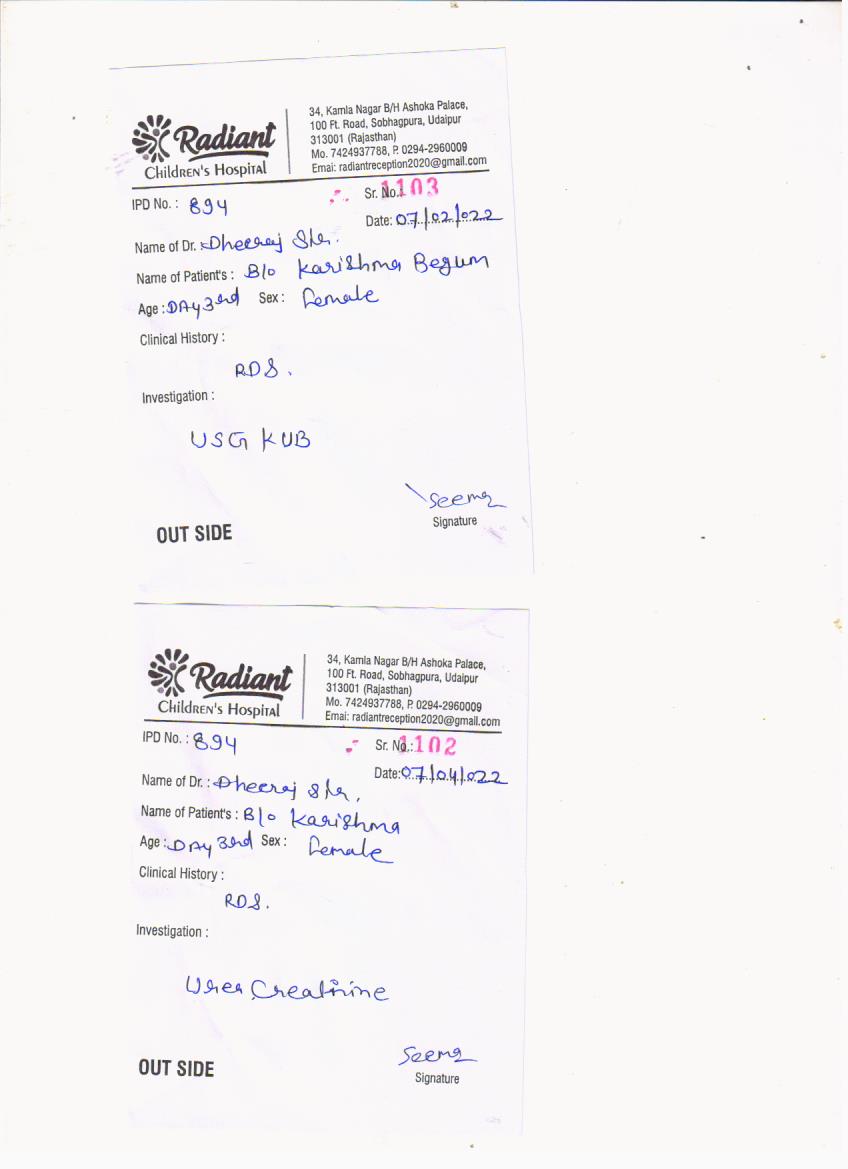 Radiant
Children's Hospital
34, Kamla Nagar B/H Ashoka Palace,
100 Ft. Road, Sobhagpura, Udaipur
313001 (Rajasthan)
Mo. 7424937788, P. 0294-2960009
Emai: radiantreception2020@gmail.com
IPD No. : 894
Sr. No.: 1103
Date: 07/02/022
Name of Dr. : Dheeraj
Name of Patient's : B/o Karishma Begum
Age : DAy 3rd Sex : female
Clinical History :
RDS.
Investigation :
USG KUB
Seema
Signature
OUT SIDE
Radiant
Children's Hospital
34, Kamla Nagar B/H Ashoka Palace,
100 Ft. Road, Sobhagpura, Udaipur
313001 (Rajasthan)
Mo. 7424937788, P. 0294-2960009
Emai: radiantreception2020@gmail.com
IPD No. : 894
Sr. No.: 1102
Date: 07/04/022
Name of Dr. : Dheeraj
Name of Patient's : B/o Karishma
Age : DAy 3rd Sex : female
Clinical History :
RDS.
Investigation :
Urea Creatinine
Seema
Signature
OUT SIDE